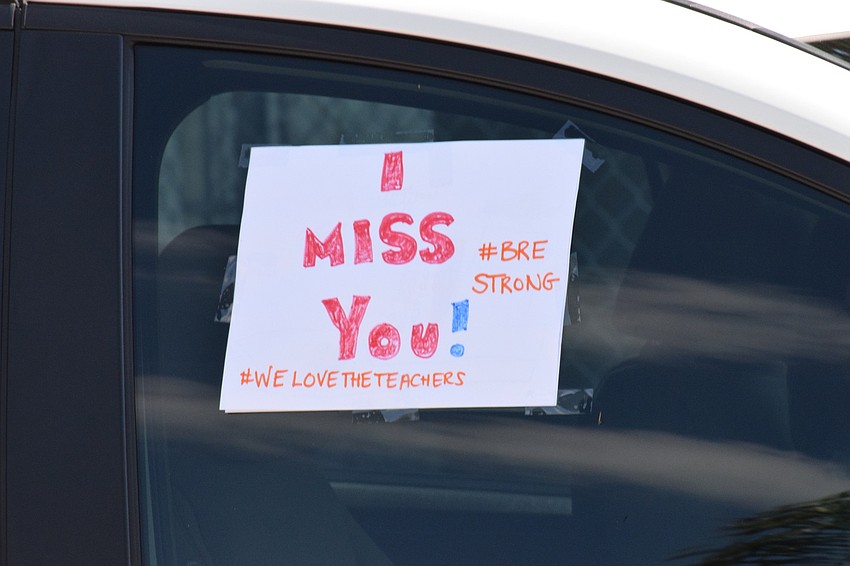 I
MISS
YOU!
#BRE
STRONG
#WELOVETHETEACHERS